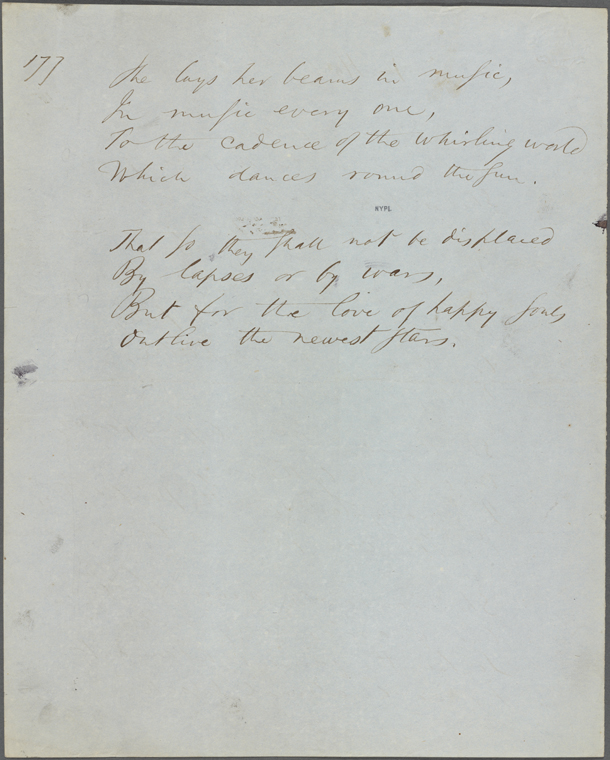 177
She lays her beams in music,
In music every one,
To the cadence of the whirling world
Which dances round the sun.
NYPL
That so they shall not be displaced
By lapses or by wars,
But for the love of happy souls
Outlive the newest stars.